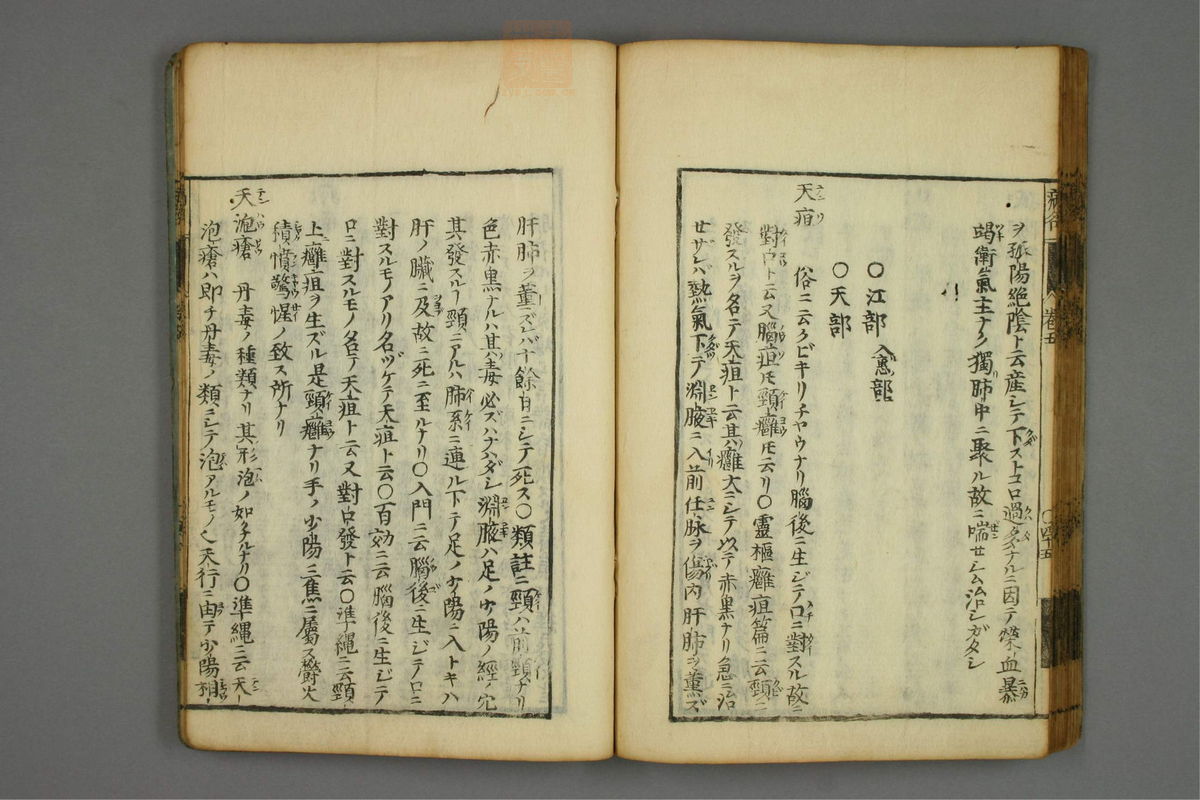 ヲ孤陽絶陰ト云産シテ下ストコロ過多ナルニ因テ榮血暴
蝎衛氣主ナク獨肺中ニ聚ル故ニ喘セシム治シガタシ
〇江部 入恵部
〇天部
天疽 俗ニ云クビキリチヤウナリ腦後ニ生ジテ口ニ對スル故ニ
對口ト云又腦疽𪜈頸癰𪜈云リ〇靈樞癰疽篇ニ云頸ニ
發スルヲ名テ天疽ト云其ハ癰大ニシテ以テ赤黒ナリ急ニ治
セザレバ熱氣下テ淵腋ニ入前任脉ヲ傷内肝肺ヲ薫ズ
肝肺ヲ薫ズレバ十餘日ニシテ死ス〇類註ニ頸ハ前頸ナリ
色赤黒ナルハ其毒必ズハナハダシ淵腋ハ足ノ少陽ノ經ノ穴
其發スルヿ頸ニアルハ肺系ニ連ル下テ足ノ少陽ニ入トキハ
肝ノ臓ニ及故ニ死ニ至ルナリ〇入門ニ云腦後ニ生ジテ口ニ
對スルモノアリ名ヅケテ天疽ト云〇百効ニ云腦後ニ生ジテ
口ニ對スルモノ名テ天疽ト云又對口發ト云〇準縄ニ云頸
上癰疽ヲ生ズル是頸癰ナリ手ノ少陽三焦ニ屬ス欝火
積憤驚惺ノ致ス所ナリ
天泡瘡 丹毒ノ種類ナリ其形泡ノ如キナリ〇準縄ニ云天
泡瘡ハ即チ丹毒ノ類ニシテ泡アルモノ天行ニ由テ少陽相
卷五
〇四十五